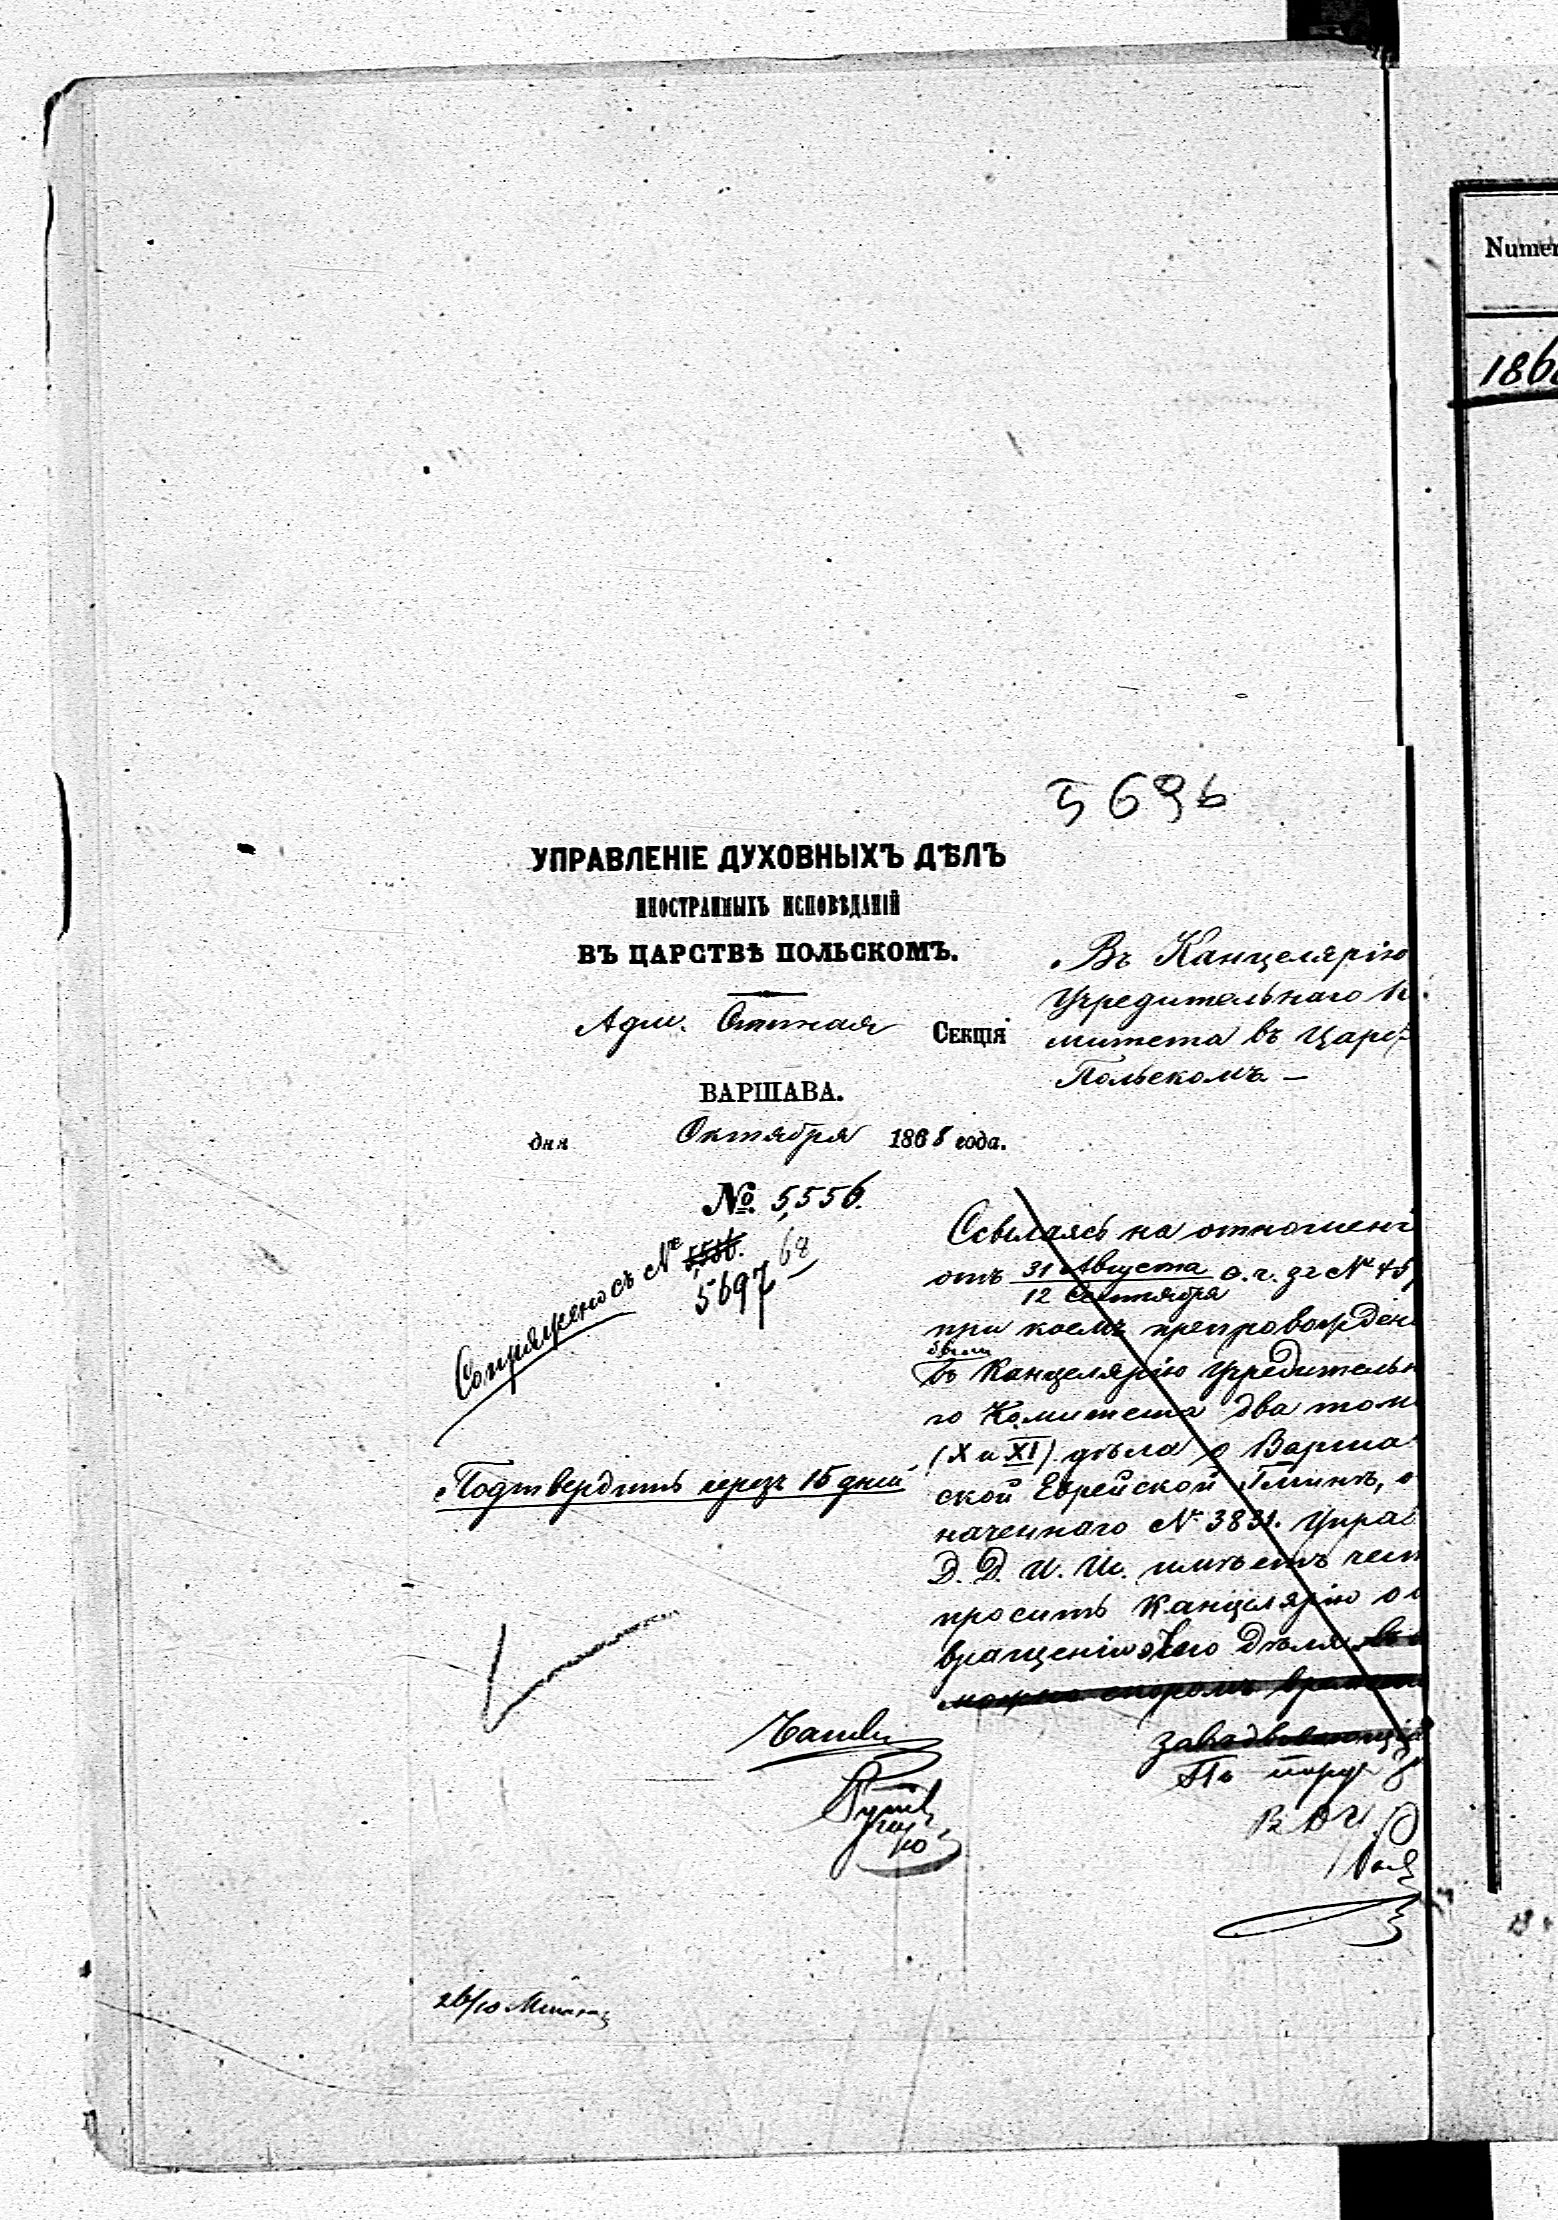 5696
УПРАВЛЕНІЕ ДУХОВНЫХЪ ДѢЛЪ
ИНОСТРАННЫХЪ ИСПОВѢДАНІЙ
ВЪ ЦАРСТВѢ ПОЛЬСКОМЪ.
Адм. СЕКЦІЯ
ВАРШАВА.
дня Октября 1868 года.
№ 5,556.
Сопряжено съ № 5,556. 68
5697
Подтвердить черезъ 15 дней
Въ Канцелярію
Учредительнаго Ко
митета въ Царс
Польскомъ —
Ссылаясь на отношені
отъ 31 Августа / 12 Сентября с. г. за № 45
при коемъ препровожден
были
въ Канцелярію Учредительн
го Комитета два том
(X и XI) дѣла о Варша
ской Еврейской Гминѣ, о
наченнаго № 3831. Управ
Д. Д. И. И. имѣетъ чест
проситъ Канцелярію о
вращеніи Дѣла въ
можно скоромъ времени
Завѣдывающій
По
26/10
Numer
186